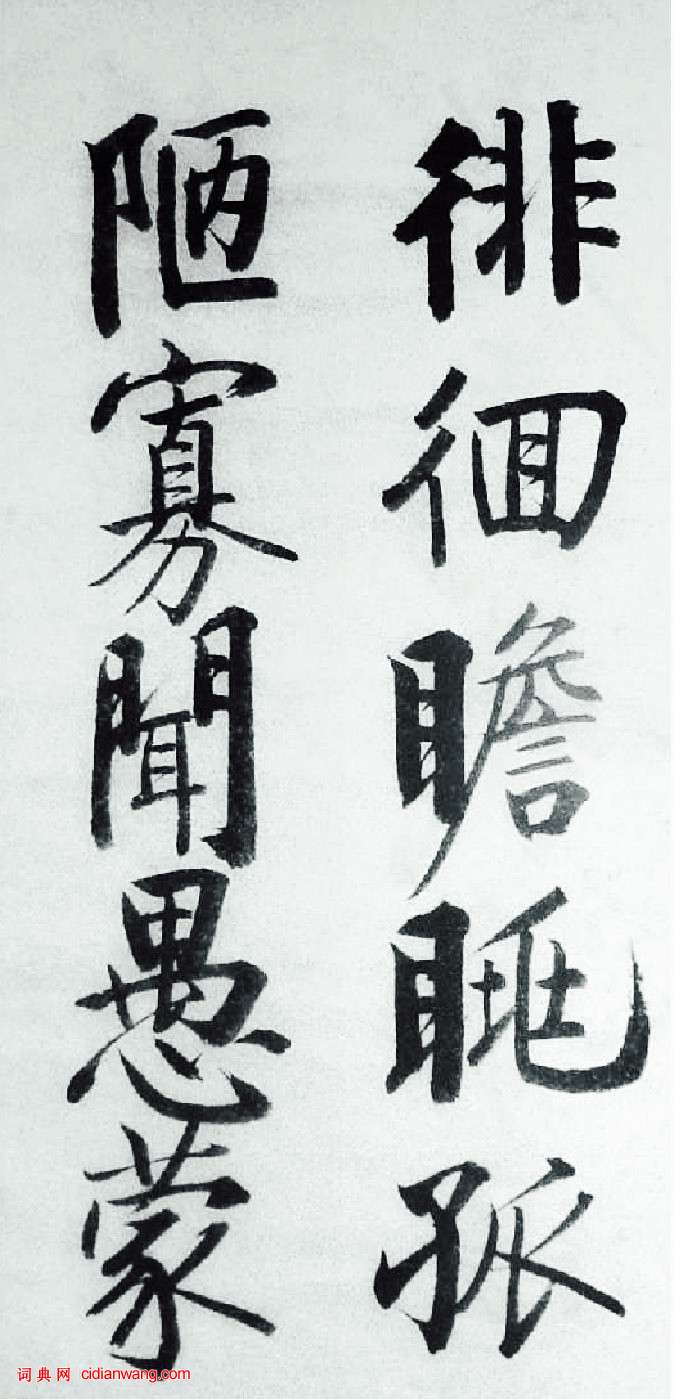 徘徊瞻眺孤
陋寡聞愚蒙
词典网 cidianwang.com